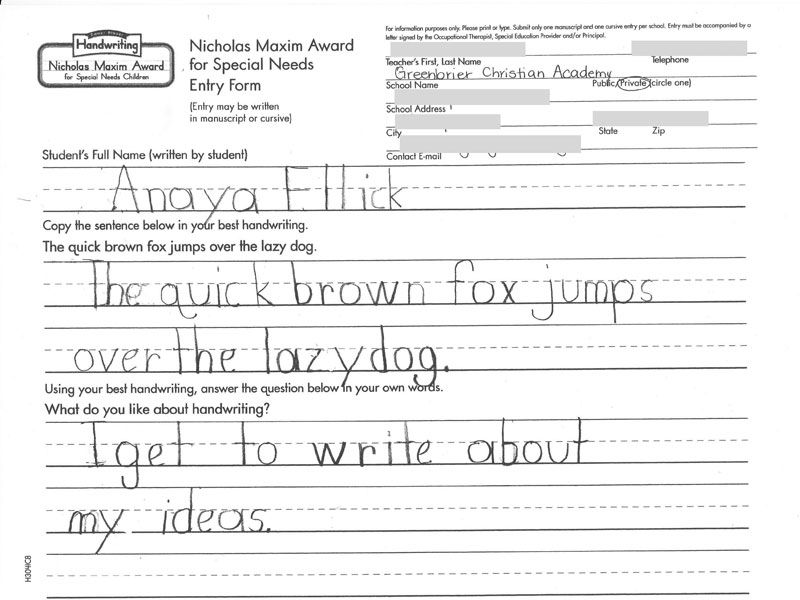 Zaner-Bloser
Handwriting
Nicholas Maxim Award
for Special Needs Children
Nicholas Maxim Award
for Special Needs
Entry Form
(Entry may be written
in manuscript or cursive)
For information purposes only. Please print or type. Submit only one manuscript and one cursive entry per school. Entry must be accompanied by a
letter signed by the Occupational Therapist, Special Education Provider and/or Principal.
Teacher's First, Last Name Telephone
Greenbrier Christian Academy
School Name Public/Private (circle one)
School Address
City State Zip
Contact E-mail
Student's Full Name (written by student)
Anaya Ellick
Copy the sentence below in your best handwriting.
The quick brown fox jumps over the lazy dog.
The quick brown fox jumps
over the lazy dog.
Using your best handwriting, answer the question below in your own words.
What do you like about handwriting?
I get to write about
my ideas.